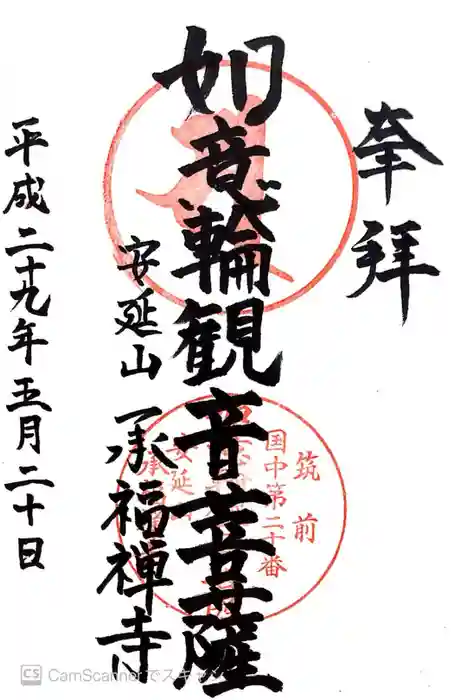 奉拝
如意輪観音菩薩
安延山 承福禅寺
平成二十九年五月二十日
筑前
国中第二十番
安延
CS CamScannerでスキャ